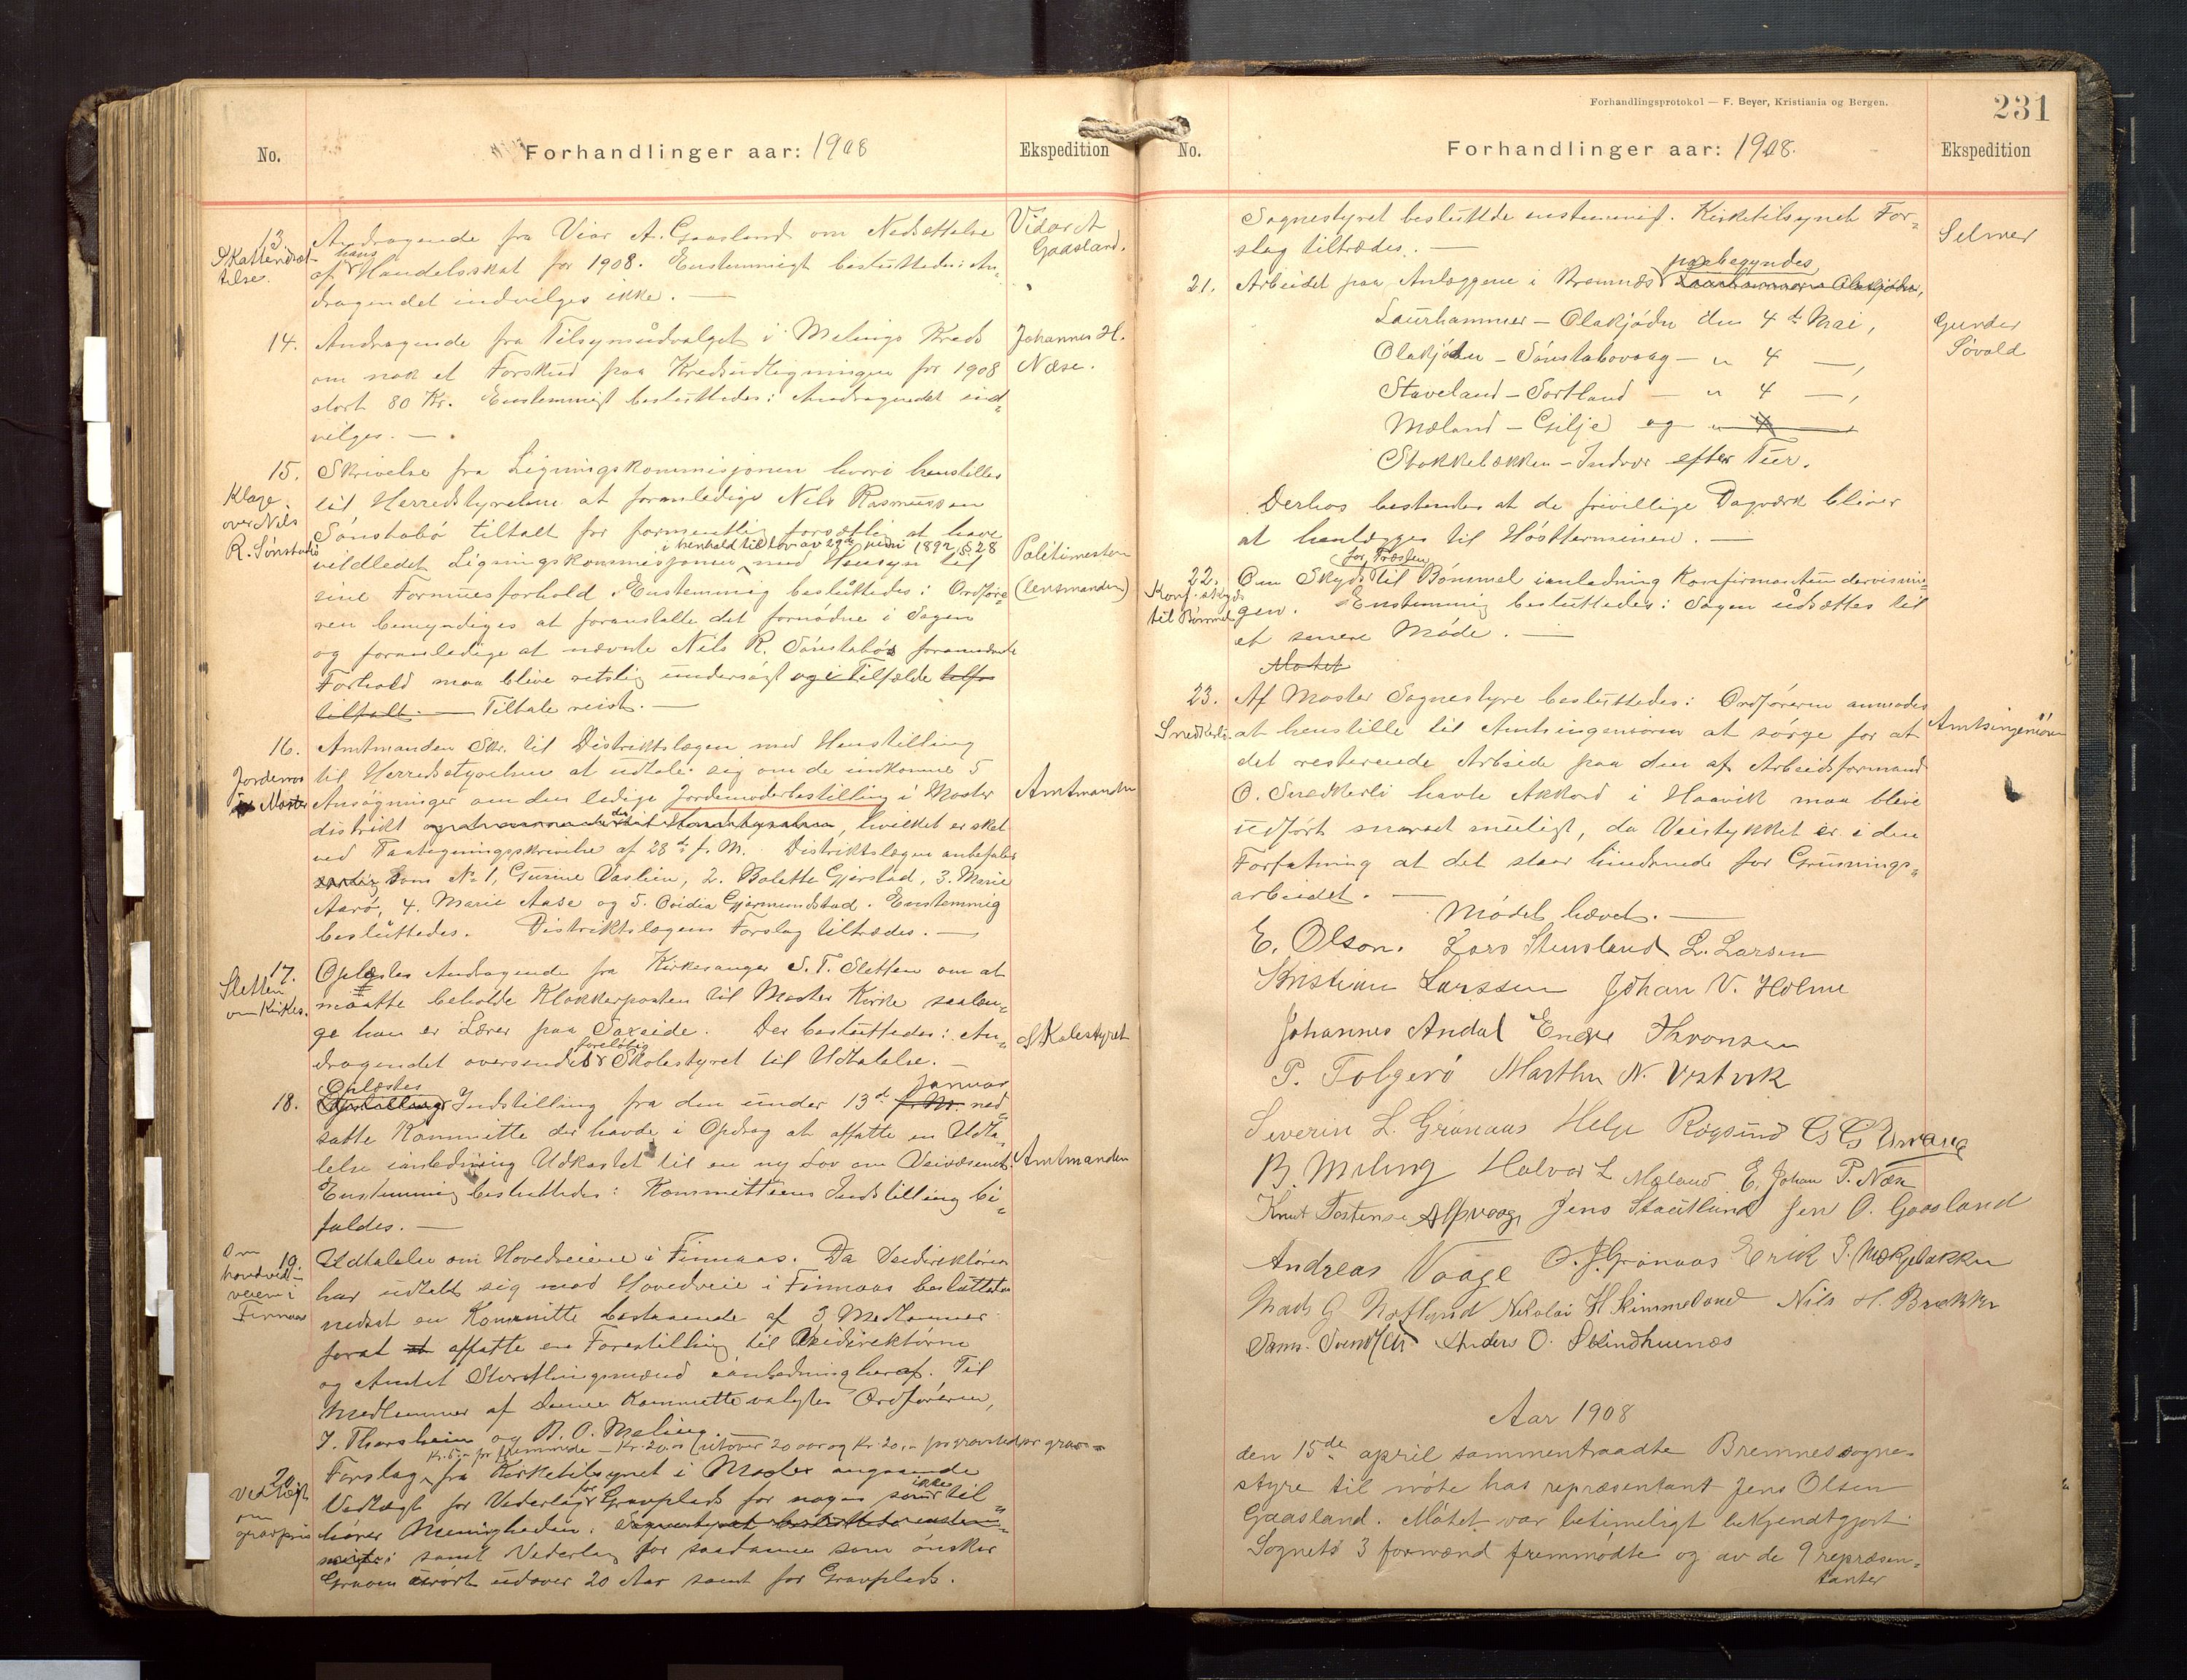 No.
Forhandlinger aar: 1908
Ekspedition
13.
Skattenedsæt-
telse.
Andragende fra Viar A. Gaasland om Nedsættelse
af hans Handelsskat for 1908. Enstemmigt besluttedes: An-
dragendet indvilges ikke. —
Vidar A
Gaasland.
14. Andragende fra Tilsynsudvalget i Melings Kreds
om nok et Forskud paa Kredsudligningen for 1908
stort 80 Kr. Enstemmigt besluttedes: Andragendet ind-
vilges. —
Johannes H.
Næse.
15.
Klage
over Nils
R. Sønstabø
Skrivelse fra Ligningskommisjonen hvori henstilles
til Herredstyrelsen at foranledige Nils Rasmussen
Sønstabø tiltalt for formentlig forsætlig at have
i henhold til lov av 29de juni 1892 § 28
vildledet Ligningskommisjonen med Hensyn til
sine Formuesforhold. Enstemmig besluttedes: Ordføre-
ren bemyndiges at foranstalte det fornødne i Sagen
og foranledige at nævnte Nils R. Sønstabøs foranførte
Forhold maa blive retslig undersøgt og i Tilfælde
tiltalt. — Tiltale reist. —
Politimesteren
(lensmanden)
16.
Jordemor
Moster
Amtmanden Skr. til Distriktslægen med Henstilling
til Herredsstyrelsen at udtale sig om de indkomne 5
Ansøgninger om den ledige Jordemoderbestilling i Moster
distrikt, hvilket er sket
ved Paategningsskrivelse af 28de f. M. Distriktslægen anbefaler
som No 1, Gurine Vaslien, 2. Bolette Gjerstad, 3. Marie
Aarø, 4. Marie Aase og 5. Ovidia Gjermundstad. Enstemmig
besluttedes. Distriktslægens Forslag tiltrædes. —
Amtmanden
17.
Sletten
om Kirkes.
Oplæstes Andragende fra Kirkesanger S. T. Sletten om at
maatte beholde Klokkerposten til Moster Kirke saalæn-
ge han er Lærer paa Saxeide. Der besluttedes: An-
dragendet oversendes foreløbig Skolestyret til Udtalelse. —
Skolestyret
18. Oplæstes Indstilling fra den under 13de Januar ned-
satte Kommitte der havde i Opdrag at affatte en Udta-
lelse ianledning Udkastet til en ny Lov om Veivæsenet.
Enstemmig besluttedes: Kommitteens Indstilling bi-
faldes. —
Amtmanden
19.
Om
hovedvei-
veiene i
Finnaas
Udtalelse om Hovedveiene i Finnaas. Da Veidirektøren
har udtalt sig mod Hovedveie i Finnaas besluttedes
nedsat en Kommitte bestaaende af 3 Medlemmer
forat at affatte en Forestilling til Veidirektørne
og Amtet Storthingsmænd ianledning heraf. Til
Medlemmer af denne Kommitte valgtes Ordføreren,
T. Thorsheim og B. O. Meling. —
20.
Vedtægt
om
gravpris
Kr. 5,- for fremmede - Kr. 20.00 (utover 20 aar og Kr. 20,- for gravsted pr grav -
Forslag fra Kirketilsynet i Moster angaaende
Vedtægt for Vederlag for Gravplads for nogen som ikke til-
hører Menigheden. Sognestyret besluttede enstem-
mig: samt Vederlag for saadanne som ønsker
Graven urørt udover 20 Aar samt for Gravplads.
Forhandlingsprotokol — F. Beyer, Kristiania og Bergen.
231
No.
Forhandlinger aar: 1908.
Ekspedition
Sognestyret besluttede enstemmigt. Kirketilsynets For-
slag tiltrædes. —
Selmer
21. Arbeidet paa Anlæggene i Bremnes paabegyndes
Laurhammer - Olakjødn den 4de Mai,
Olakjødn - Sønstabøvaag - " 4 —,
Staveland - Sortland - " 4 —,
Mæland - Gilje og "
Stokkebækken - Indvær efter Tur.
Gunder
Søvold
Derhos bestemtes at de frivillige Dagværk bliver
at henlægges til Høstterminen. —
22.
Konf. skyds
til Bømmel
Om Skyds for Præsten til Bømmel ianledning Konfirmantundervisnin-
gen. Enstemmig besluttedes: Sagen udsættes til
et senere Møde. —
Møtet
23.
Snedkerli
Af Moster Sognestyre besluttedes: Ordføreren anmodes
at henstille til Amtsingeniøren at sørge for at
det resterende Arbeide paa den af Arbeidsformand
O. Snedkerli havte Akkord i Haavik maa blive
udført snarest muligt, da Veistykket er i den
Forfatning at det staar hindrende for Grusnings-
arbeidet. —
Amtsingeniøren
Mødet hævet. —
E. Olson. Lars Stensland L. Larsen
Kristian Larssen Johan V. Holme
Johannes Andal Endre Thronsen
P. Folgerø Marthin N. Vestvik
Severin L. Grønaas Helge Røgsund
B. Meling Halvor L Mæland E. Johan P. Næse
Knut Tostensen Alfvaag Jens Stautland Jens O. Gaasland
Andreas Vaage O. J. Grønaas Erik J. Mækjebakken
Mads G Nøtland Nikolai H Rimmeland Nils H. Brække
Sams. Svendsen Anders O. Skindhuenæs
Aar 1908
den 15de april sammentraadte Bremnes sogne-
styre til møte hos repræsentant Jens Olsen
Gaasland. Møtet var betimeligt bekjendtgjort.
Sognets 3 formænd fremmødte og av de 9 repræsen-
tanter